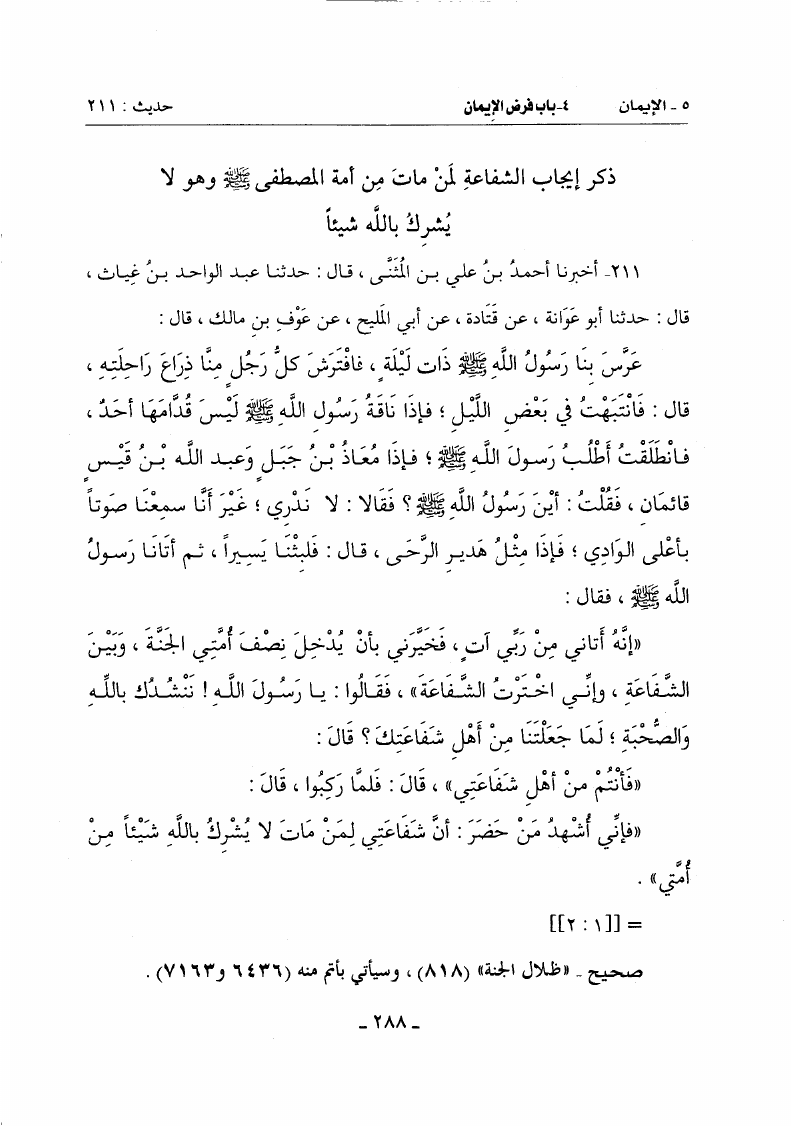 ٥ - الإيمان ٤-باب فرض الإيمان حديث : ٢١١
ذكر إيجاب الشفاعةِ لَمَنْ ماتَ مِن أمة المصطفى ﷺ وهو لا
يُشرِكُ بالله شيئاً
٢١١- أخبرنا أحمدُ بنُ علي بنِ الْمُثَنَّى ، قال : حدثنا عبد الواحد بنُ غِياث ،
قال : حدثنا أبو عَوَانة ، عن قَتَادة ، عن أبي الْمَليح ، عن عَوْفِ بنِ مالك ، قال :
عَرَّسَ بنَا رَسُولُ اللَّهِ ﷺ ذَات لَيْلَةٍ ، فَافْتَرَشَ كلُّ رَجُلٍ مِنَّا ذِرَاعَ رَاحِلَتِهِ ،
قال : فَانْتَبَهْتُ فِي بَعْضِ اللَّيْلِ ؛ فإذَا نَاقَةُ رَسُولِ اللَّهِ ﷺ لَيْسَ قُدَّامَهَا أحَدٌ ،
فانْطَلَقْتُ أَطْلُبُ رَسولَ اللَّهِ ﷺ ؛ فإذا مُعَاذُ بْنُ جَبَلٍ وَعبد الله بْنُ قَيْسٍ
قائمَان ، فَقُلْتُ : أيْنَ رَسُولُ اللَّهِ ﷺ ؟ فقَالا : لا نَدْرِي ؛ غَيْرَ أنَّا سمِعْنَا صَوتاً
بأعْلى الوَادِي ؛ فَإذَا مِثْلُ هَدِيرِ الرَّحَى ، قال : فَلَبِثْنَا يَسِيراً ، ثم أَتَانَا رَسولُ
اللهِ ﷺ ، فقال :
«إنَّهُ أَتاني مِنْ رَبِّي آتٍ ، فَخَيَّرَنِي بأنْ يُدْخِلَ نِصْفَ أُمَّتِي الجَنَّةَ ، وَبَيْنَ
الشَّفَاعَةِ ، وإنِّي اخْتَرْتُ الشَّفَاعَةَ» ، فَقَالُوا : يا رَسُولَ اللَّهِ ! نَنْشُدُكَ باللَّهِ
وَالصُّحْبَةِ ؛ لَمَا جَعَلْتَنَا مِنْ أَهْلِ شَفَاعَتِكَ ؟ قَالَ :
«فَأَنْتُمْ مِنْ أهْلِ شَفَاعَتِي» ، قَالَ : فَلَمَّا رَكِبُوا ، قَالَ :
«فإنِّي أُشْهِدُ مَنْ حَضَرَ : أنَّ شَفَاعَتِي لِمَنْ مَاتَ لا يُشْرِكُ باللهِ شَيْئاً مِنْ
أُمَّتي» .
= [[١ : ٢]]
صحيح - «ظلال الجنة» (٨١٨) ، وسيأتي بأتم منه (٦٤٣٦ و٧١٦٣) .
- ٢٨٨ -